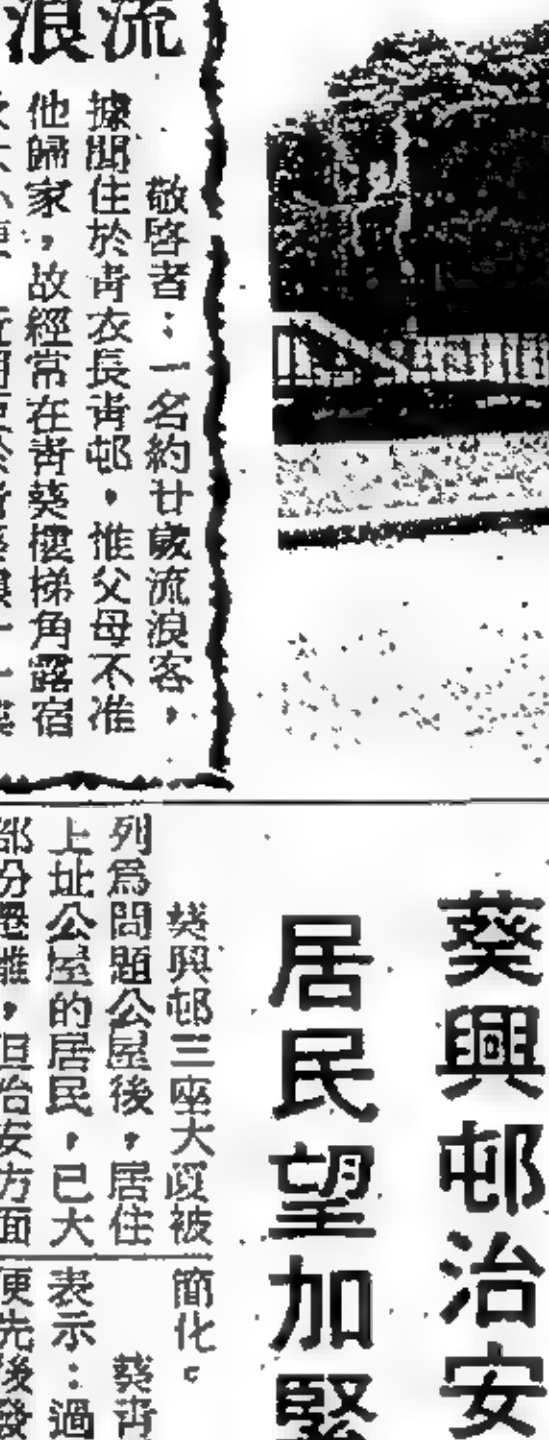 流浪
敬啓者：一名約廿歲流浪客，
據聞住於青衣長青邨，惟父母不准
他歸家，故經常在青葵樓梯角露宿
葵興邨治安
居民望加緊
葵興邨三座大廈被
列為問題公屋後，居住
上址公屋的居民，已大
部分遷離，但治安方面
簡化。
葵青
表示：過
便先後發